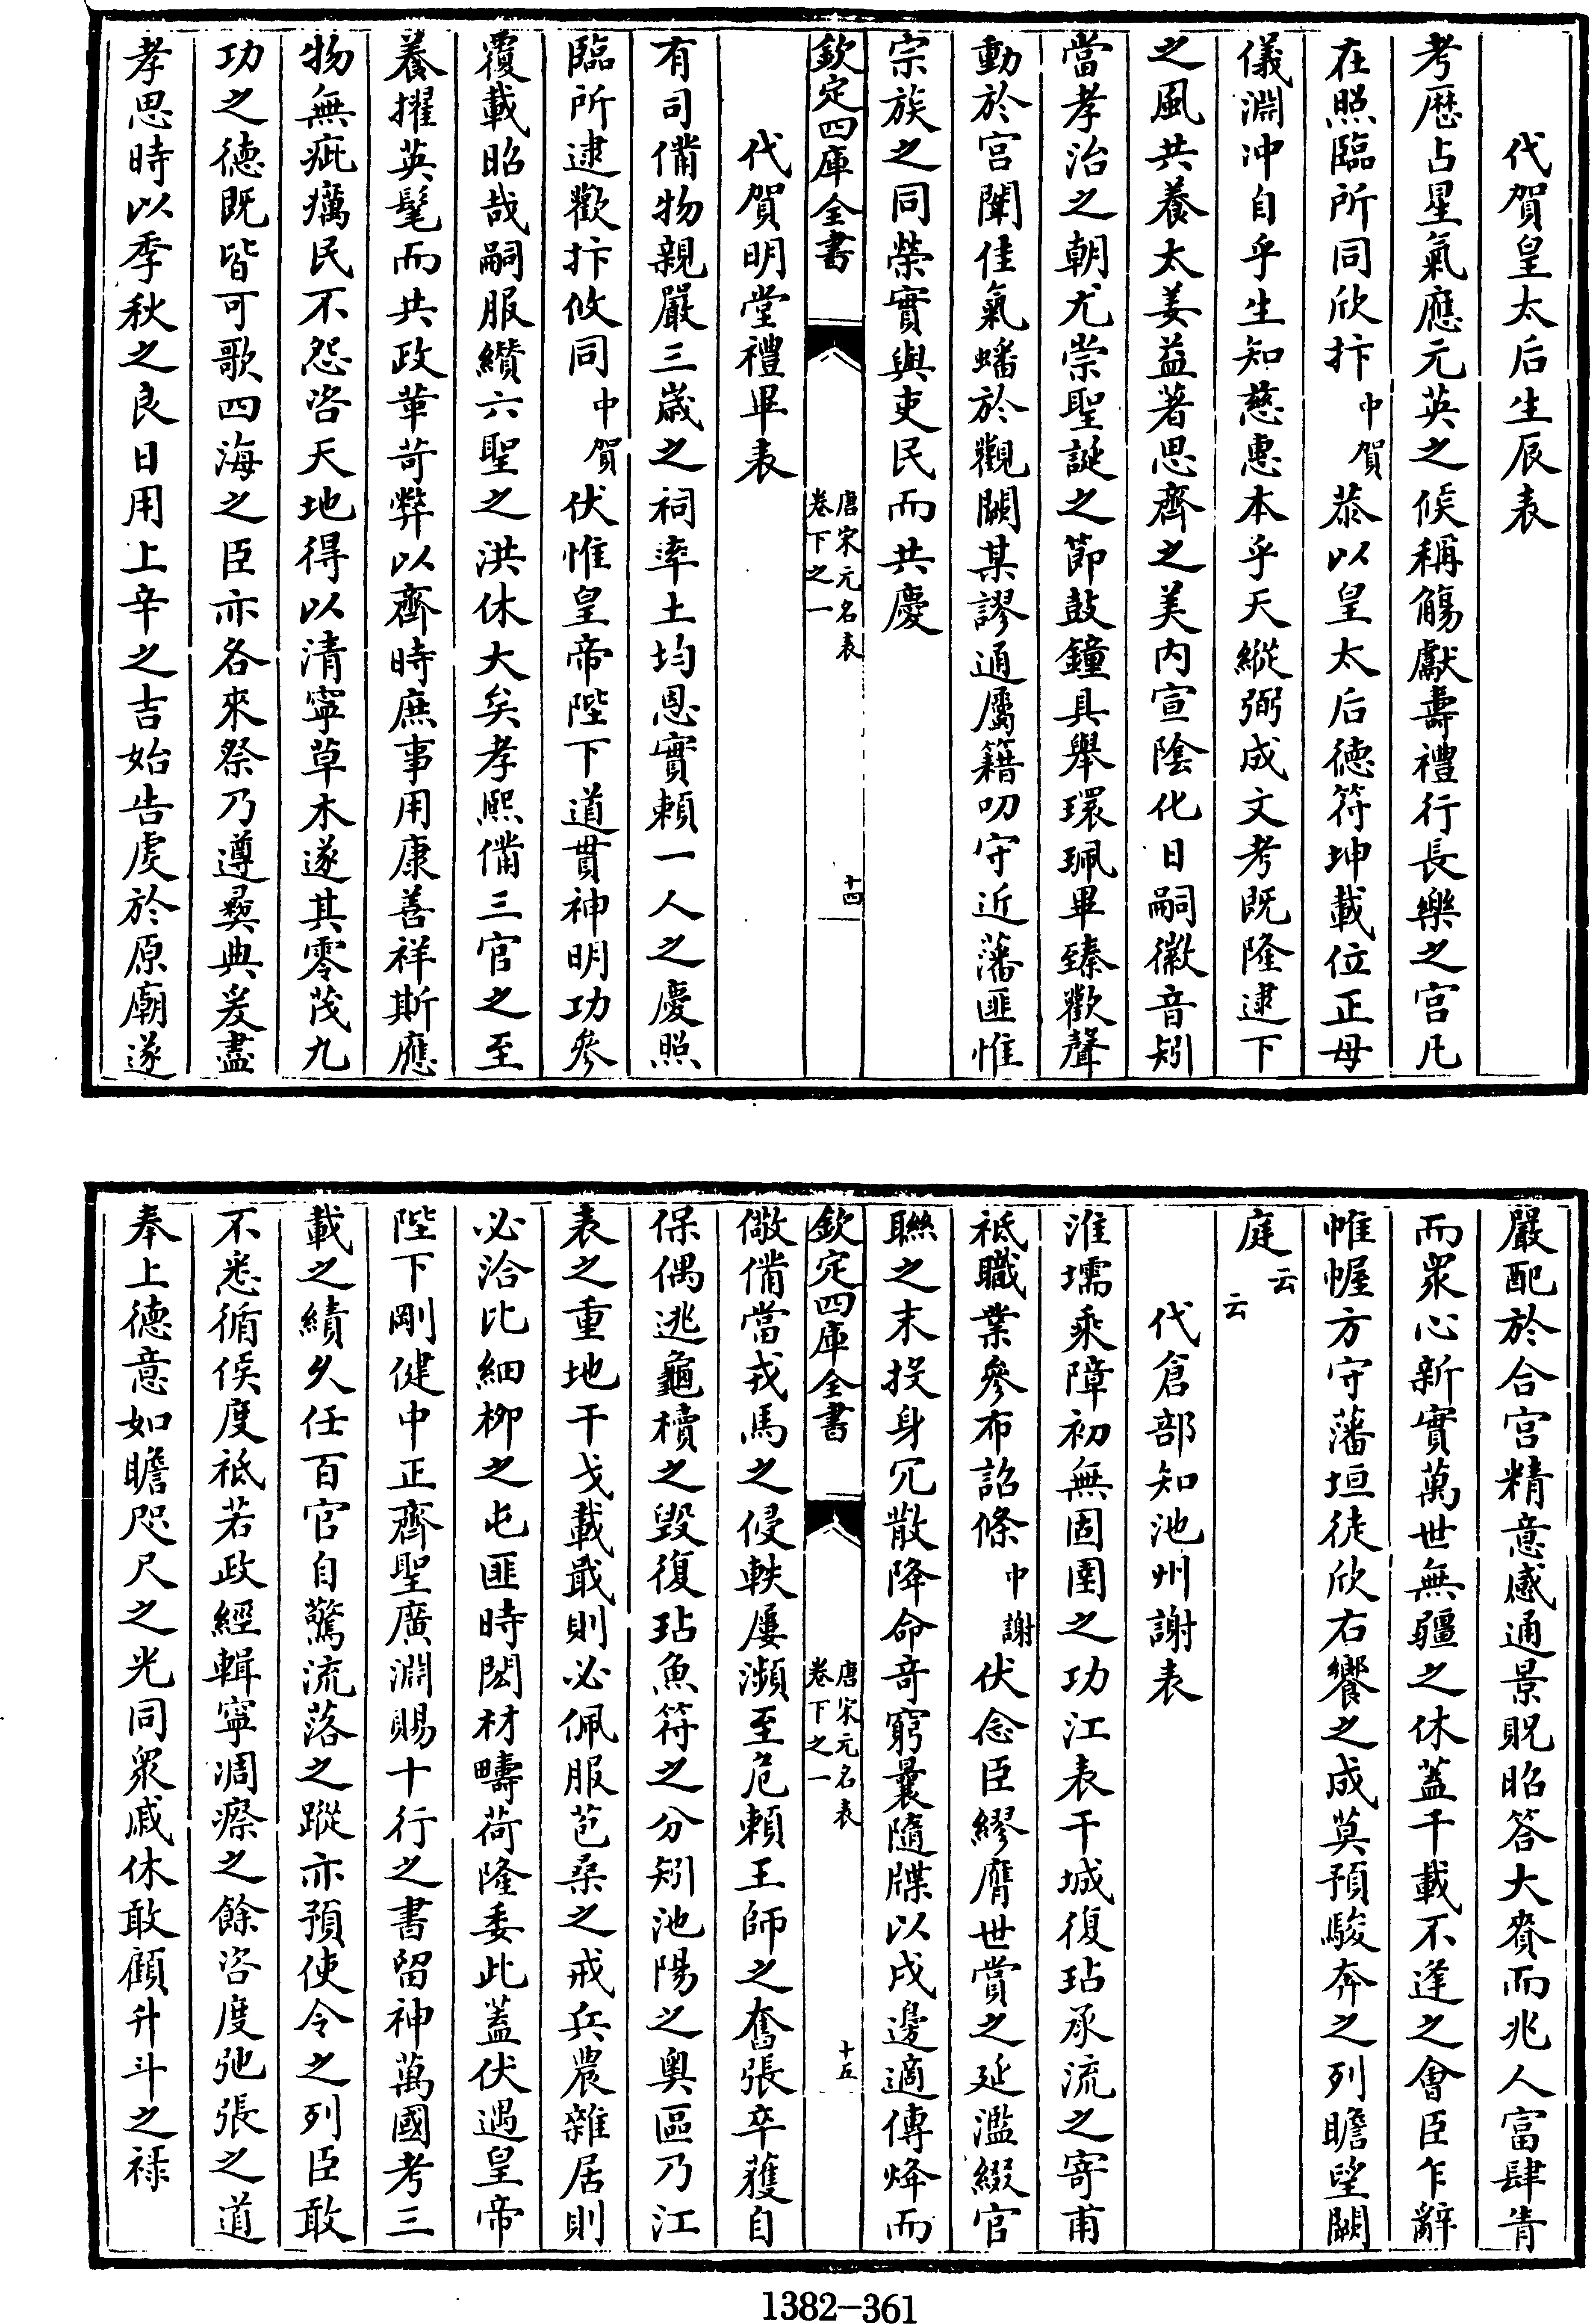 代賀皇太后生辰表
考歴占星氣應元英之候稱觴獻壽禮行長樂之宫凡
在照臨所同欣抃中賀恭以皇太后德符坤載位正母
儀淵冲自乎生知慈惠本乎天縱弼成文考既隆逮下
之風共養太姜益著思齊之美内宣陰化日嗣徽音矧
當孝治之朝尤崇聖誕之節鼓鐘具舉環珮畢臻歡聲
動於宫闈佳氣蟠於觀闕某謬通屬籍叨守近藩匪惟
宗族之同榮實與吏民而共慶
欽定四庫全書
唐宋元名表
卷下之一
十四
代賀明堂禮畢表
有司備物親嚴三歲之祠率土均恩實頼一人之慶照
臨所逮歡抃攸同中賀伏惟皇帝陛下道貫神明功參
覆載昭哉嗣服纘六聖之洪休大矣孝熙備三官之至
養擢英髦而共政革苛弊以齊時庶事用康善祥斯應
物無疵癘民不怨咨天地得以清寧草木遂其零茂九
功之德既皆可歌四海之臣亦各來祭乃遵彛典爰盡
孝思時以季秋之良日用上辛之吉始告䖍於原廟遂
嚴配於合宫精意感通景貺昭答大賚而兆人富肆眚
而衆心新實萬世無疆之休蓋千載不逢之會臣乍辭
帷幄方守藩垣徒欣右饗之成莫預駿奔之列瞻望闕
庭云云
代倉部知池州謝表
淮壖乘障初無固圉之功江表干城復玷承流之寄甫
祗職業參布詔條中謝伏念臣繆膺世賞之延濫綴官
聯之末投身冗散降命竒窮曩隨牒以戍邊適傳烽而
欽定四庫全書
唐宋元名表
卷下之一
十五
儆備當戎馬之侵軼屢瀕至危頼王師之奮張卒獲自
保偶逃龜櫝之毁復玷魚符之分矧池陽之奥區乃江
表之重地干戈載戢則必佩服苞桑之戒兵農雜居則
必洽比細栁之屯匪時閎材疇荷隆委此蓋伏遇皇帝
陛下剛健中正齊聖廣淵賜十行之書留神萬國考三
載之績久任百官自驚流落之蹤亦預使令之列臣敢
不悉循侯度祗若政經輯寧凋瘵之餘咨度弛張之道
奉上德意如瞻咫尺之光同衆戚休敢顧升斗之禄
1382-361